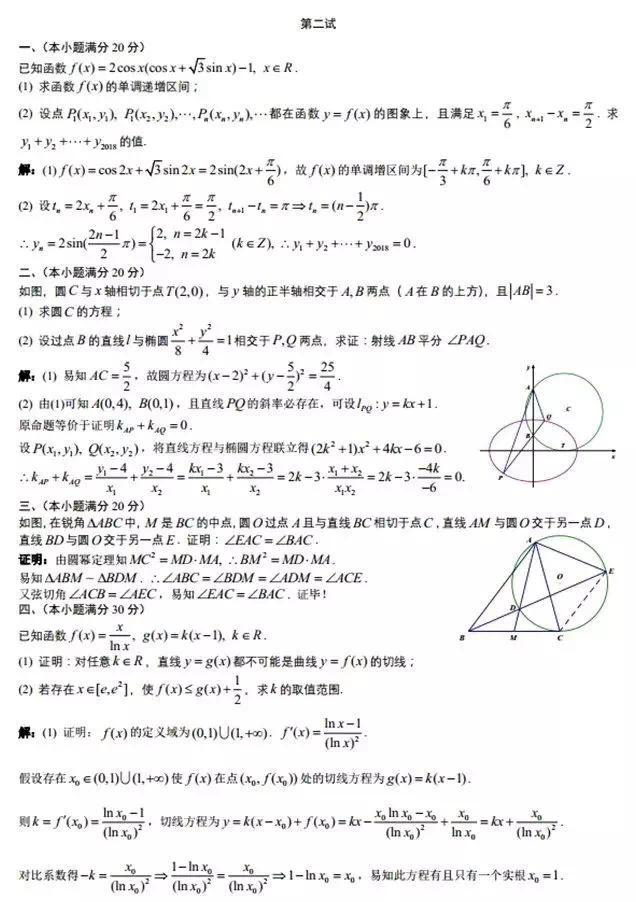 第二试
一、（本小题满分 20 分）
已知函数 f(x) = 2cos x(cos x + √3 sin x) − 1, x ∈ R .
(1) 求函数 f(x) 的单调递增区间；
(2) 设点 P₁(x₁, y₁), P₁(x₂, y₂), ⋯, Pₙ(xₙ, yₙ), ⋯ 都在函数 y = f(x) 的图象上，且满足 x₁ = π/6 , xₙ₊₁ − xₙ = π/2 . 求
y₁ + y₂ + ⋯ + y₂₀₁₈ 的值.
解：(1) f(x) = cos 2x + √3 sin 2x = 2sin(2x + π/6)，故 f(x) 的单调增区间为 [−π/3 + kπ, π/6 + kπ], k ∈ Z .
(2) 设 tₙ = 2xₙ + π/6, t₁ = 2x₁ + π/6 = π/2, tₙ₊₁ − tₙ = π ⇒ tₙ = (n − 1/2)π .
∴ yₙ = 2sin((2n−1)/2 π) = {2, n = 2k−1; −2, n = 2k (k ∈ Z), ∴ y₁ + y₂ + ⋯ + y₂₀₁₈ = 0 .
二、（本小题满分 20 分）
如图，圆 C 与 x 轴相切于点 T(2,0)，与 y 轴的正半轴相交于 A, B 两点（A 在 B 的上方），且 |AB| = 3 .
(1) 求圆 C 的方程；
(2) 设过点 B 的直线 l 与椭圆 x²/8 + y²/4 = 1 相交于 P, Q 两点，求证：射线 AB 平分 ∠PAQ .
解：(1) 易知 AC = 5/2，故圆方程为 (x − 2)² + (y − 5/2)² = 25/4 .
(2) 由(1)可知 A(0,4), B(0,1)，且直线 PQ 的斜率必存在，可设 l_PQ : y = kx + 1 .
原命题等价于证明 k_AP + k_AQ = 0 .
设 P(x₁, y₁), Q(x₂, y₂)，将直线方程与椭圆方程联立得 (2k² + 1)x² + 4kx − 6 = 0 .
∴ k_AP + k_AQ = (y₁−4)/x₁ + (y₂−4)/x₂ = (kx₁−3)/x₁ + (kx₂−3)/x₂ = 2k − 3·(x₁+x₂)/(x₁x₂) = 2k − 3·(−4k)/(−6) = 0.
y
A
C
Q
B
T
x
P
三、（本小题满分 20 分）
如图，在锐角 ΔABC 中，M 是 BC 的中点，圆 O 过点 A 且与直线 BC 相切于点 C，直线 AM 与圆 O 交于另一点 D，
直线 BD 与圆 O 交于另一点 E．证明：∠EAC = ∠BAC .
证明：由圆幂定理知 MC² = MD·MA, ∴ BM² = MD·MA .
易知 ΔABM ~ ΔBDM . ∴ ∠ABC = ∠BDM = ∠ADM = ∠ACE .
又弦切角 ∠ACB = ∠AEC，易知 ∠EAC = ∠BAC．证毕！
A
E
O
D
B
M
C
四、（本小题满分 30 分）
已知函数 f(x) = x/ln x, g(x) = k(x − 1), k ∈ R .
(1) 证明：对任意 k ∈ R，直线 y = g(x) 都不可能是曲线 y = f(x) 的切线；
(2) 若存在 x ∈ [e, e²]，使 f(x) ≤ g(x) + 1/2，求 k 的取值范围.
解：(1) 证明：f(x) 的定义域为 (0,1)∪(1,+∞) . f′(x) = (ln x − 1)/(ln x)² .
假设存在 x₀ ∈ (0,1)∪(1,+∞) 使 f(x) 在点 (x₀, f(x₀)) 处的切线方程为 g(x) = k(x − 1) .
则 k = f′(x₀) = (ln x₀ − 1)/(ln x₀)²，切线方程为 y = k(x − x₀) + f(x₀) = kx − (x₀ ln x₀ − x₀)/(ln x₀)² + x₀/ln x₀ = kx + x₀/(ln x₀)² .
对比系数得 −k = x₀/(ln x₀)² ⇒ (1 − ln x₀)/(ln x₀)² = x₀/(ln x₀)² ⇒ 1 − ln x₀ = x₀，易知此方程有且只有一个实根 x₀ = 1 .